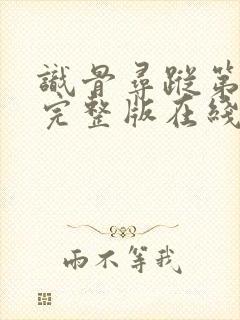 識骨尋蹤第
完整版在綫
雨不等我